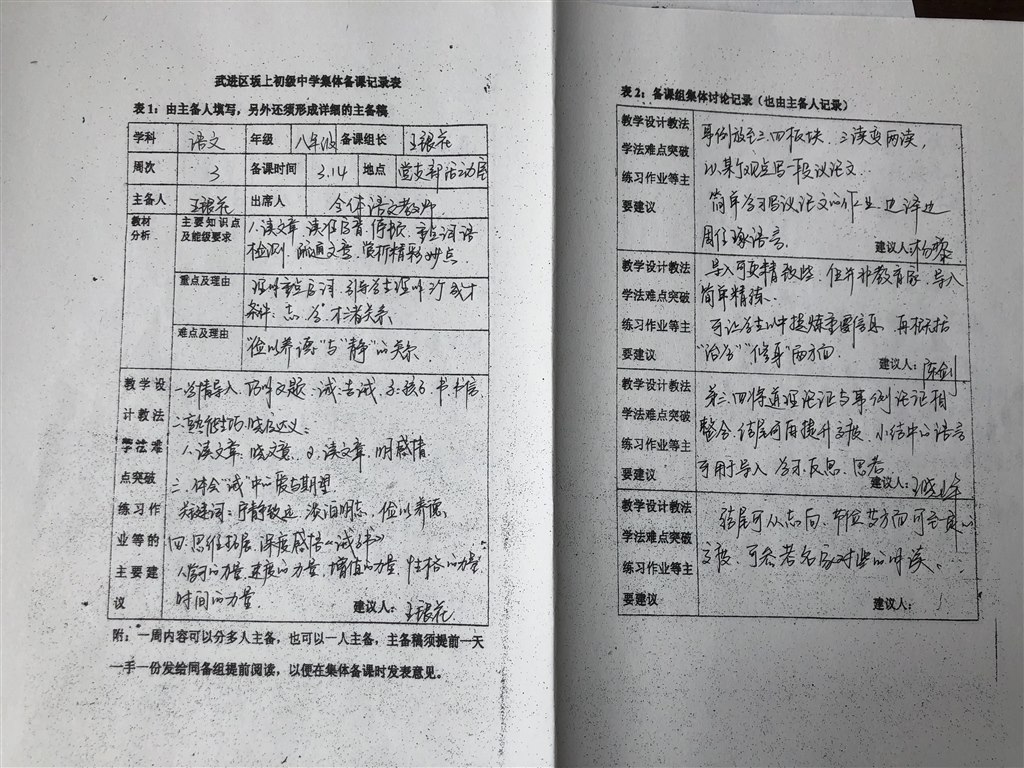 武进区坂上初级中学集体备课记录表
表1：由主备人填写，另外还须形成详细的主备稿
学科 语文 年级 八年级 备课组长 王银花
周次 3 备课时间 3.14 地点 党支部活动室
主备人 王银花 出席人 全体语文教师
教材分析 主要知识点及能级要求
1、读文章 读准字音、停顿、重点词语
检测、疏通文意、赏析精彩妙点
重点及理由
理解重点字词，引导学生理解
条件：志、学、才诸关系
难点及理由
"俭以养德"与"静"的关系
教学设计教法学法难点突破练习作业等的主要建议
一、学情导入，巧解文题，诫：告诫，子：孩子，书：书信
二、
1、读文章，晓文意 2、读文章，明感情
三、体会"诫"中的爱与期望
关键词：宁静致远，淡泊明志，俭以养德
四、思维拓展，深度感悟《诫子书》
学习的力量，速度的力量，增值的力量，性格的力量，
时间的力量
建议人：王银花
附：一周内容可以分多人主备，也可以一人主备，主备稿须提前一天
一手一份发给同备组提前阅读，以便在集体备课时发表意见。
表2：备课组集体讨论记录（也由主备人记录）
教学设计教法学法难点突破练习作业等主要建议
事例放至三四板块，三读变两读，
以某个观点写一段议论文
简单学习写议论文的作业，边译边
建议人：杨黎
教学设计教法学法难点突破练习作业等主要建议
导入可更精致些，
简单精练、
可让学生从中提炼重要信息，再概括
"治学""修身"两方面
建议人：陈剑
教学设计教法学法难点突破练习作业等主要建议
第三、四将道理论证与事例论证相
整合，结尾可再提升高度，小结中的语言
可用于导入，学习、反思、思考
建议人：
教学设计教法学法难点突破练习作业等主要建议
结尾可从志向、
高度，可参考名家对此的解读、
建议人：